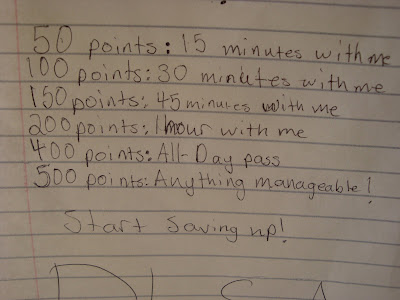 50 points: 15 minutes with me
100 points: 30 minutes with me
150 points: 45 minutes with me
200 points: 1 hour with me
400 points: All-Day pass
500 points: Anything manageable!
Start saving up!